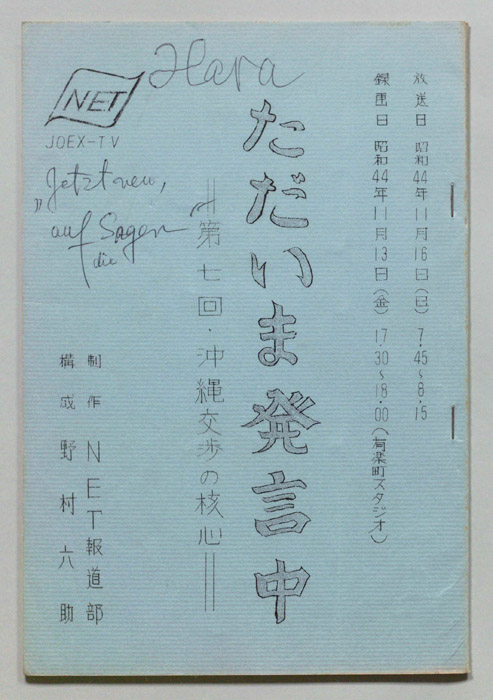 Hara
NET
JOEX-TV
„Jetzt neu,
auf Sagen"
die
放送日 昭和44年11月16日(日) 7.45~8.15
録画日 昭和44年11月13日(金) 17.30~18.00(有楽町スタジオ)
ただいま発言中
=第七回・沖縄交渉の核心=
制作 NET報道部
構成 野村六助